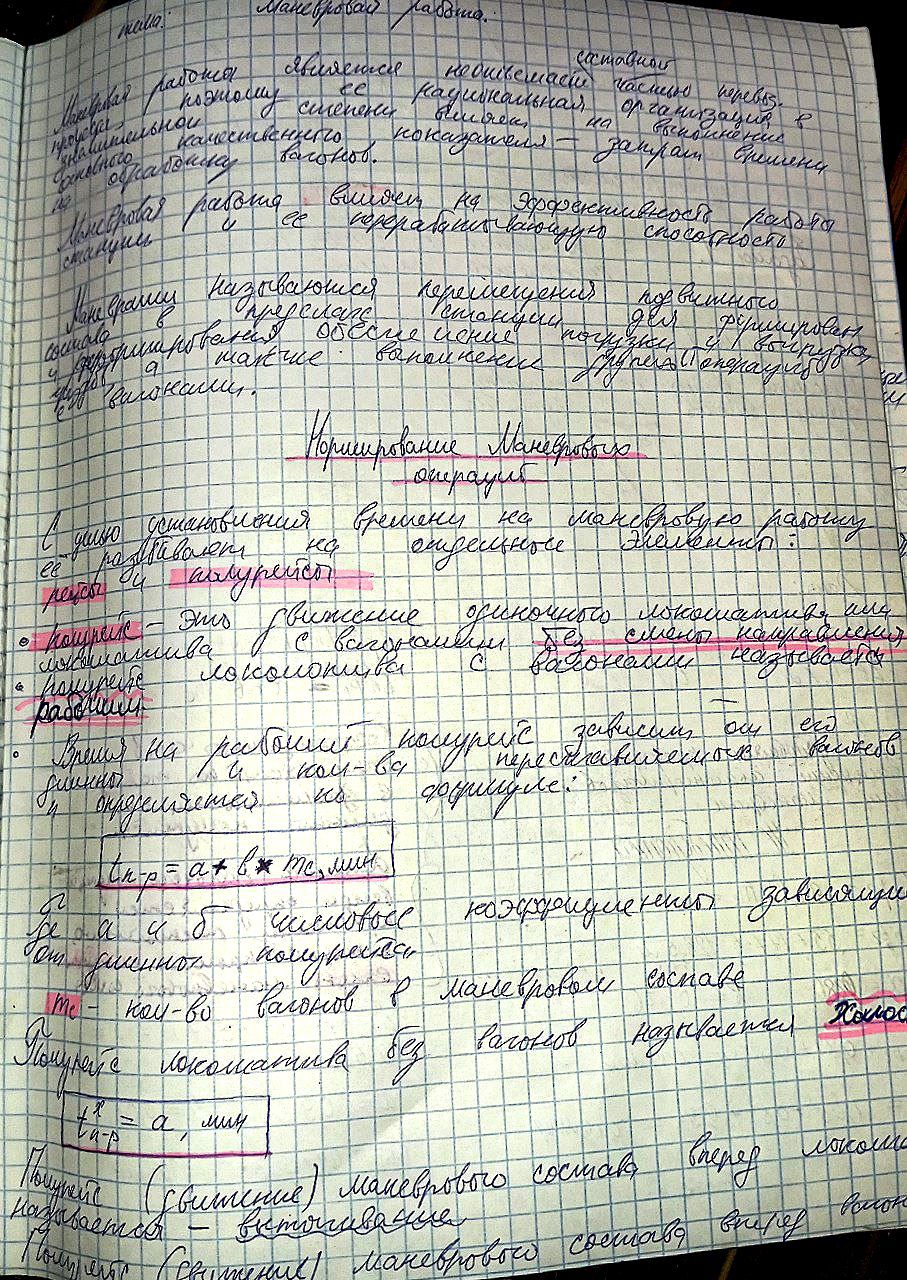 тема: Маневровая работа.
составной
Маневровая работа является неотъемлемой частью перевоз.
процесса поэтому её рациональная организация в
значительной степени влияет на выполнение
основного качественного показателя – затрат времени
на обработку вагонов.
Маневровая работа влияет на эффективность работы
станции и её перерабатывающую способность
Маневрами называются перемещения подвижного
состава в пределах станции для формирован
и расформирования обеспечение погрузки и выгрузки
а также выполнении других операций
с вагонами.
Нормирование Маневровых
операций
С целью установления времени на маневровую работу
её разбивают на отдельные элементы:
рейсы и полурейсы
• полурейс – это движение одиночного локомотива или
локомотива с вагонами без смены направления
• полурейс локомотива с вагонами называется
рабочим.
• Время на рабочий полурейс зависит от его
длинны и кол-ва переставляемых вагонов
и определяется по формуле:
tп-р = а + в * mс, мин
где а и б числовые коэффициенты зависящие
от длинны полурейса
mс – кол-во вагонов в маневровом составе
Полурейс локомотива без вагонов называется Холос
tхп-р = а, мин
Полурейс (движение) маневрового состава вперед локомо
называется – вытягивание
Полурейс (движение) маневрового состава вперед вагон